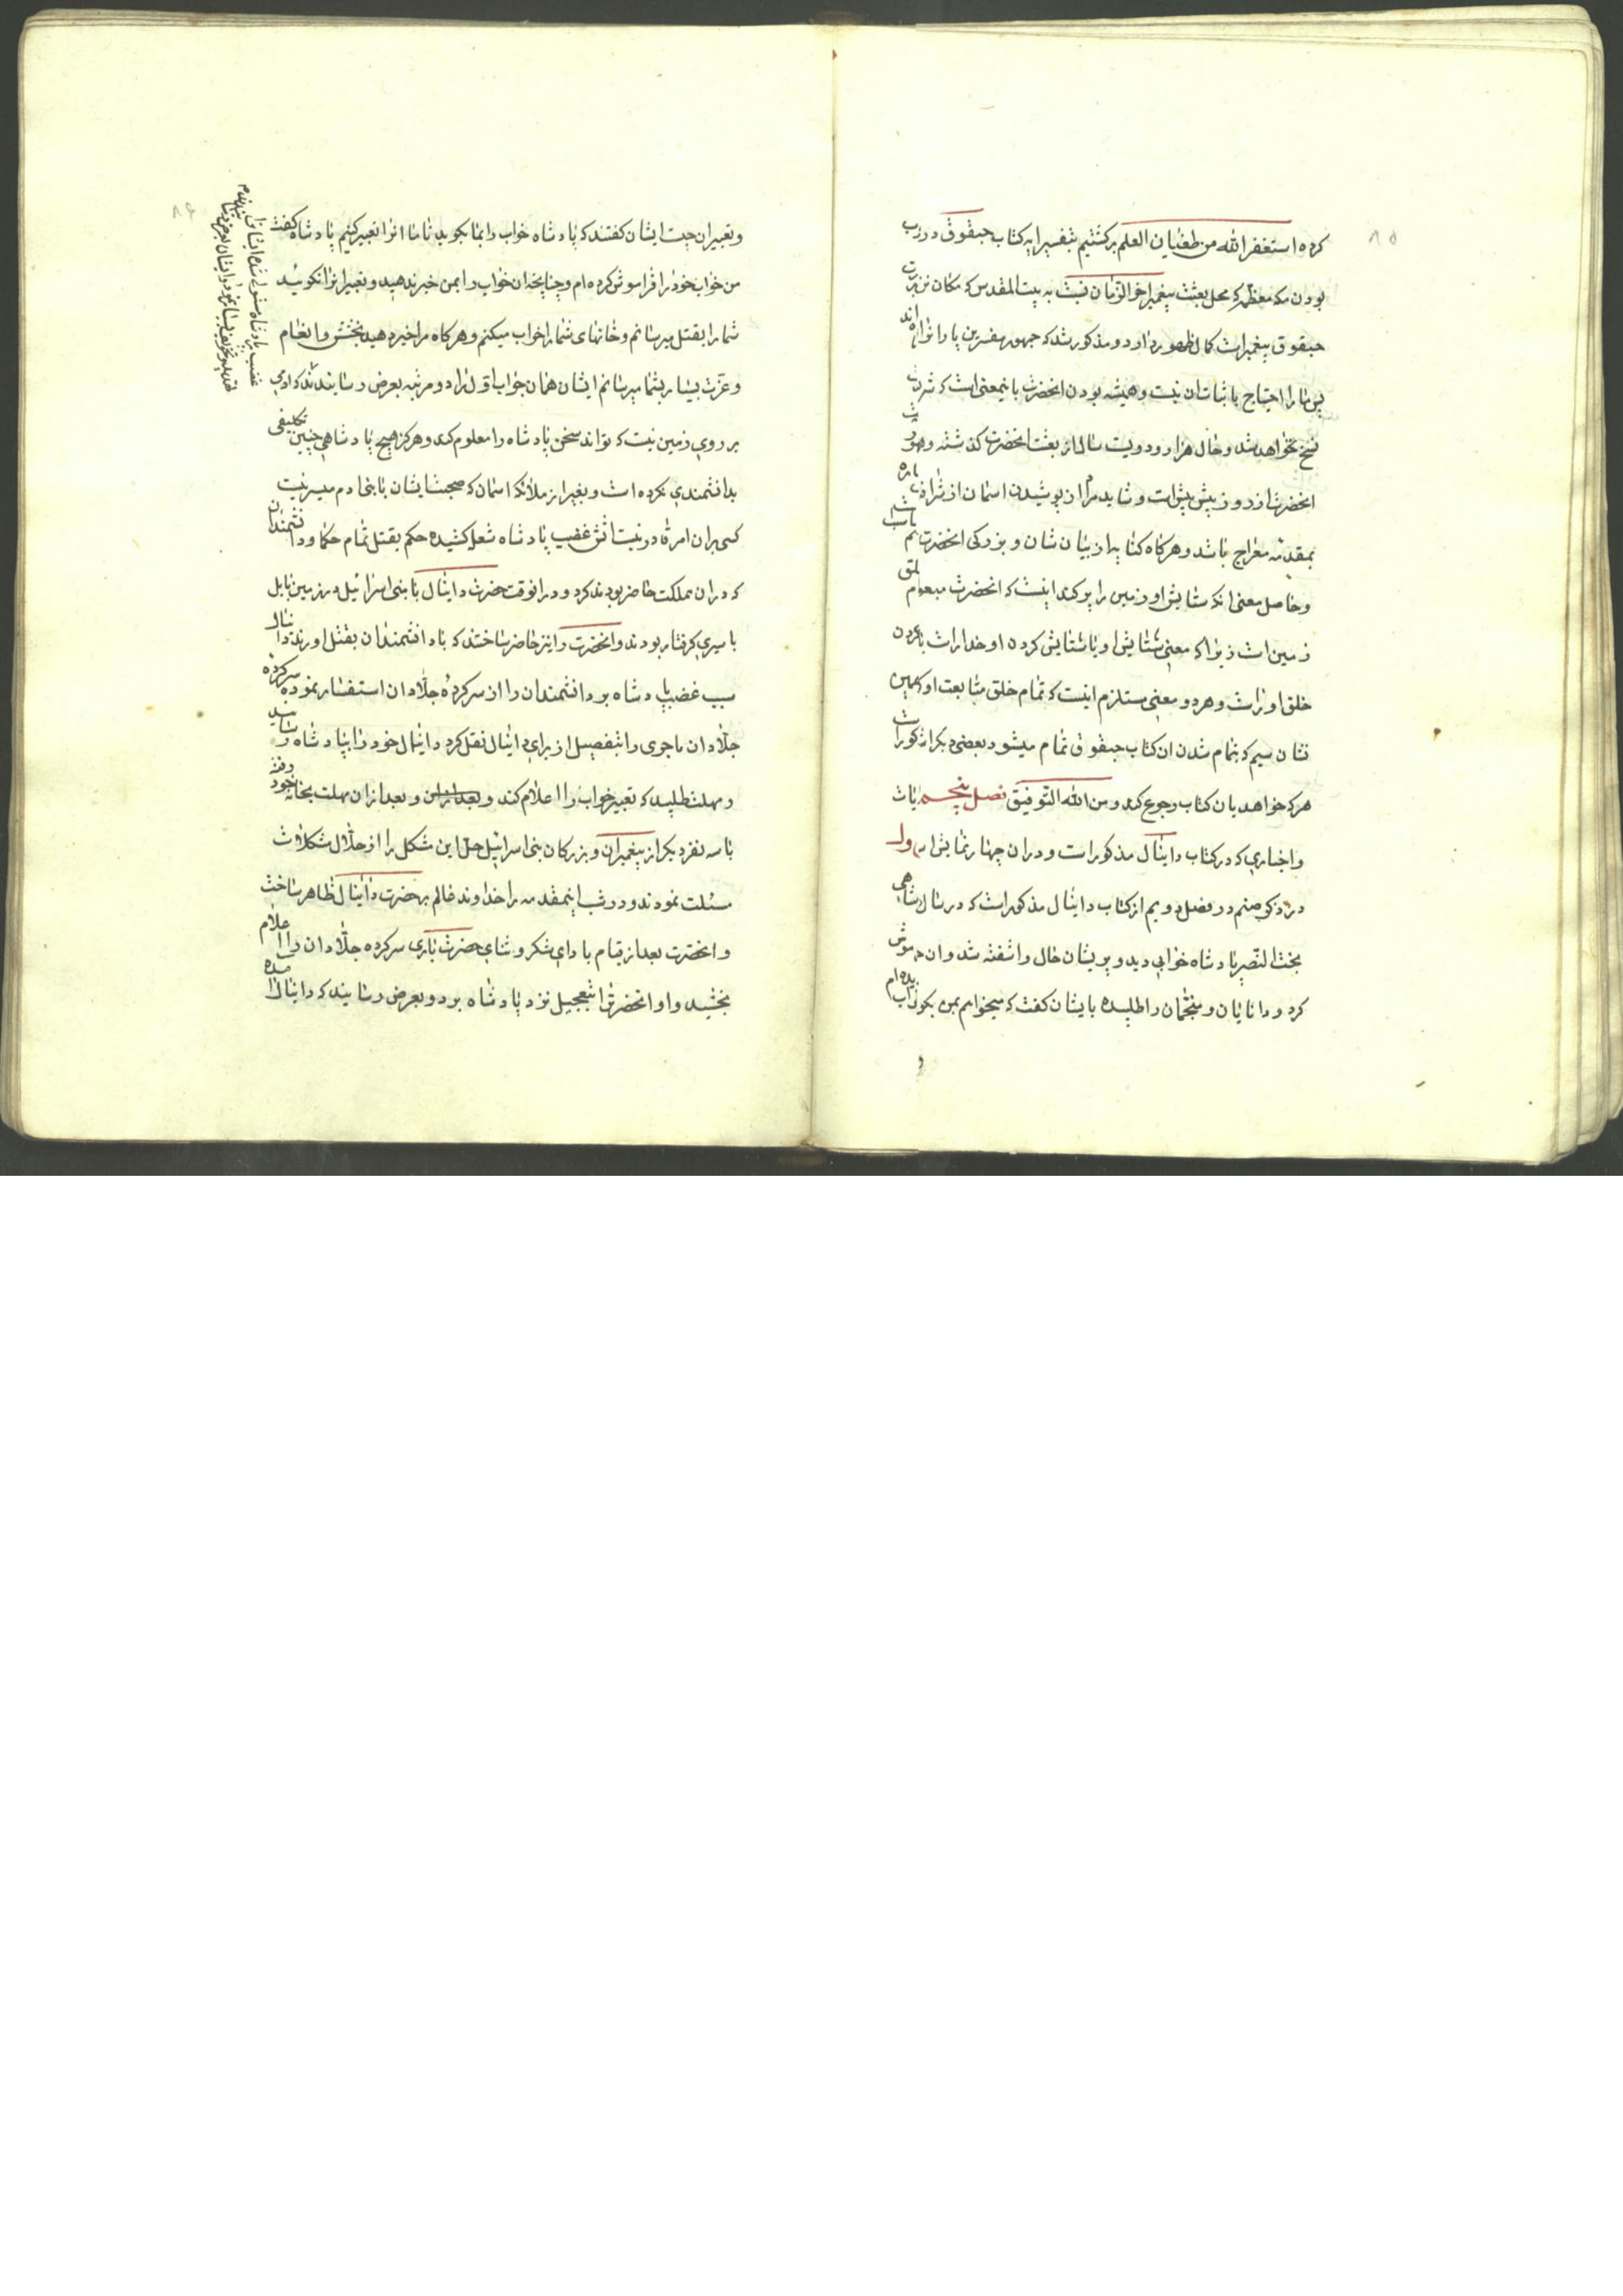 ۸۵
کرده استغفر الله من طغیان العلم برگشتیم بتفسیر آیه کتاب حبقوق در
بودن مکه معظمه که محل بعثت پیغمبر اخر الزمان نسبت به بیت المقدس که مکان
حبقوق پیغمبر است کمال ظهور دارد و مذکور شد که جمهور مفسرین
پس ما را احتیاج باثبات ان نیست و همیشه بودن انحضرت باینمعنی است که
نسخ نخواهد شد و حال هزار و دویست سال از بعثت انحضرت گذشته و
انحضرت از روز پیش بیش است و شاید مراد از پوشیدن اسمان از شرافت
بمقدمه معراج باشد و هرگاه کتابه از بیان شان و بزرگی انحضرت
و حاصل معنی انکه ستایش او زمین را پر کرد اینست که انحضرت مبعوث
زمین است زیرا که معنی ستایش او یا ستایش کردن او خدا راست یا
خلق او راست و هر دو معنی مستلزم اینست که تمام خلق متابعت او
نشان سیم که تمام شدن ان کتاب حبقوق تمام میشود بعضی دیگر
هر که خواهد بان کتاب رجوع کند و من الله التوفیق فصل پنجم
و اخباری که در کتاب داینال مذکور است و در ان چهار نمایش است اول
در فصل دویم از کتاب داینال مذکور است که در سال
بخت النصر پادشاه خوابی دید و پریشان حال و اشفته شد و ان
کرد و دانایان و منجمان را طلبیده بایشان گفت که میخواهم بمن بگوئید
۸۶
و تعبیر ان چیست ایشان گفتند که پادشاه خواب را بما بگوید تا ما انرا تعبیر کنیم پادشاه گفت
من خواب خود را فراموش کرده ام و چنانچه ان خواب را بمن خبر ندهید و تعبیر انرا نگوئید
شما را بقتل میرسانم و خانهای شما را خراب میکنم و هرگاه مرا خبر دهید بخشش و انعام
و عزت بسیار بشما میرسانم ایشان همان جواب اول را دو مرتبه بعرض رسانیدند که ادمی
بر روی زمین نیست که تواند سخن پادشاه را معلوم کند و هرگز هیچ پادشاهی چنین تکلیفی
بدانشمندی نکرده است و بغیر از ملائکه اسمان که صحبت ایشان با بنی ادم میسر نیست
کسی بر ان امر قادر نیست اتش غضب پادشاه شعله کشیده حکم بقتل تمام حکما و دانشمندان
که در ان مملکت حاضر بودند کرد و در انوقت حضرت داینال با بنی اسرائیل در زمین بابل
باسیری گرفتار بودند و انحضرت را نیز حاضر ساختند که با دانشمندان بقتل اورند داینال
سبب غضب پادشاه بر دانشمندان را از سرکردهٔ جلادان استفسار نموده سرکرده
جلادان ماجری را بتفصیل از برای داینال نقل کرد داینال خود را بپادشاه رسانید
و مهلت طلبید که تعبیر خواب را اعلام کند و بعد از ان و بعد از ان مهلت بخانه خود رفته
با سه نفر دیگر از پیغمبران و بزرگان بنی اسرائیل حل این مشکل را از حلال مشکلات
مسئلت نمودند و در شب اینمقدمه را خداوند عالم بر حضرت داینال ظاهر ساخت
و انحضرت بعد از قیام بادای شکر و ثنای حضرت باری سرکرده جلادان را اعلام
بخشید و او انحضرت را بتعجیل نزد پادشاه برد و بعرض رسانید که داینال